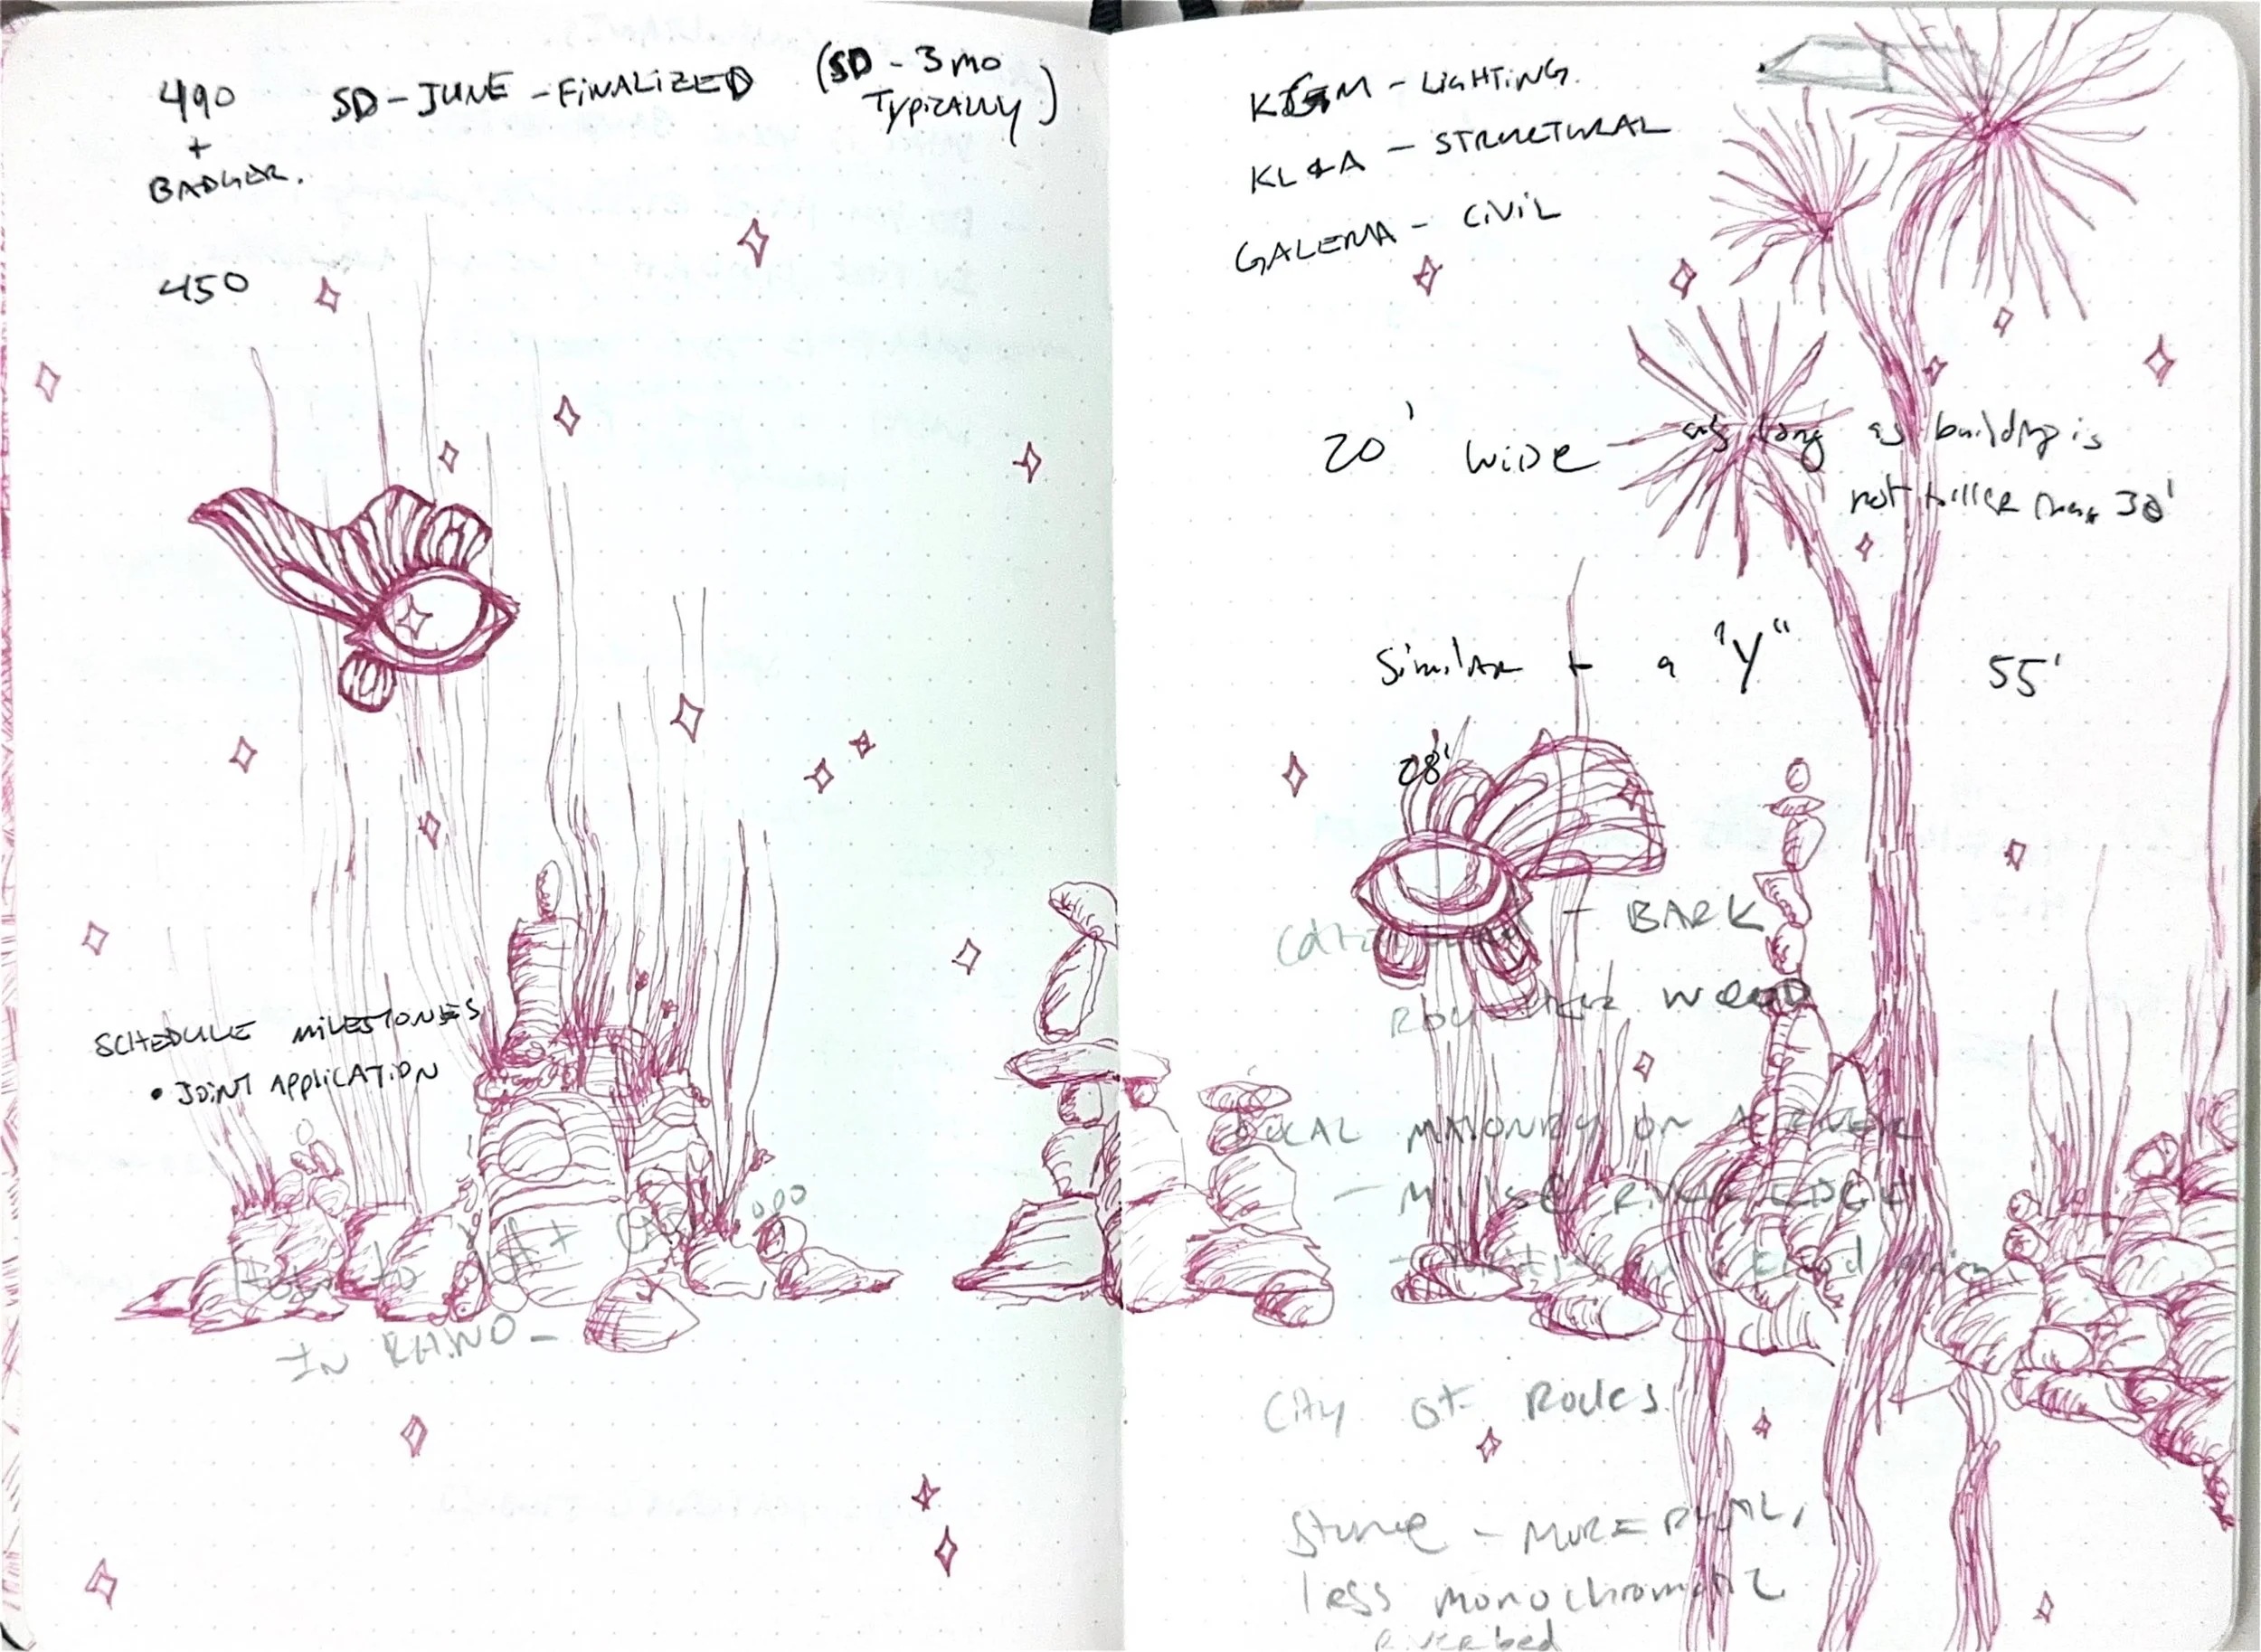 490
+
BADGER.
SD - JUNE - FINALIZED
(SD - 3 mo
TYPICALLY)
450
SCHEDULE MILESTONES
• JOINT APPLICATION
IN RHINO -
- LIGHTING.
KL&A - STRUCTURAL
GALENA - CIVIL
20' WIDE as long as building is
not taller than 30'
Similar to a "Y" 55'
28'
- BARK
WOOD
LOCAL MASONRY ON A RIVER
- RIVER EDGE
City of
- MORE
less monochromatic
riverbed